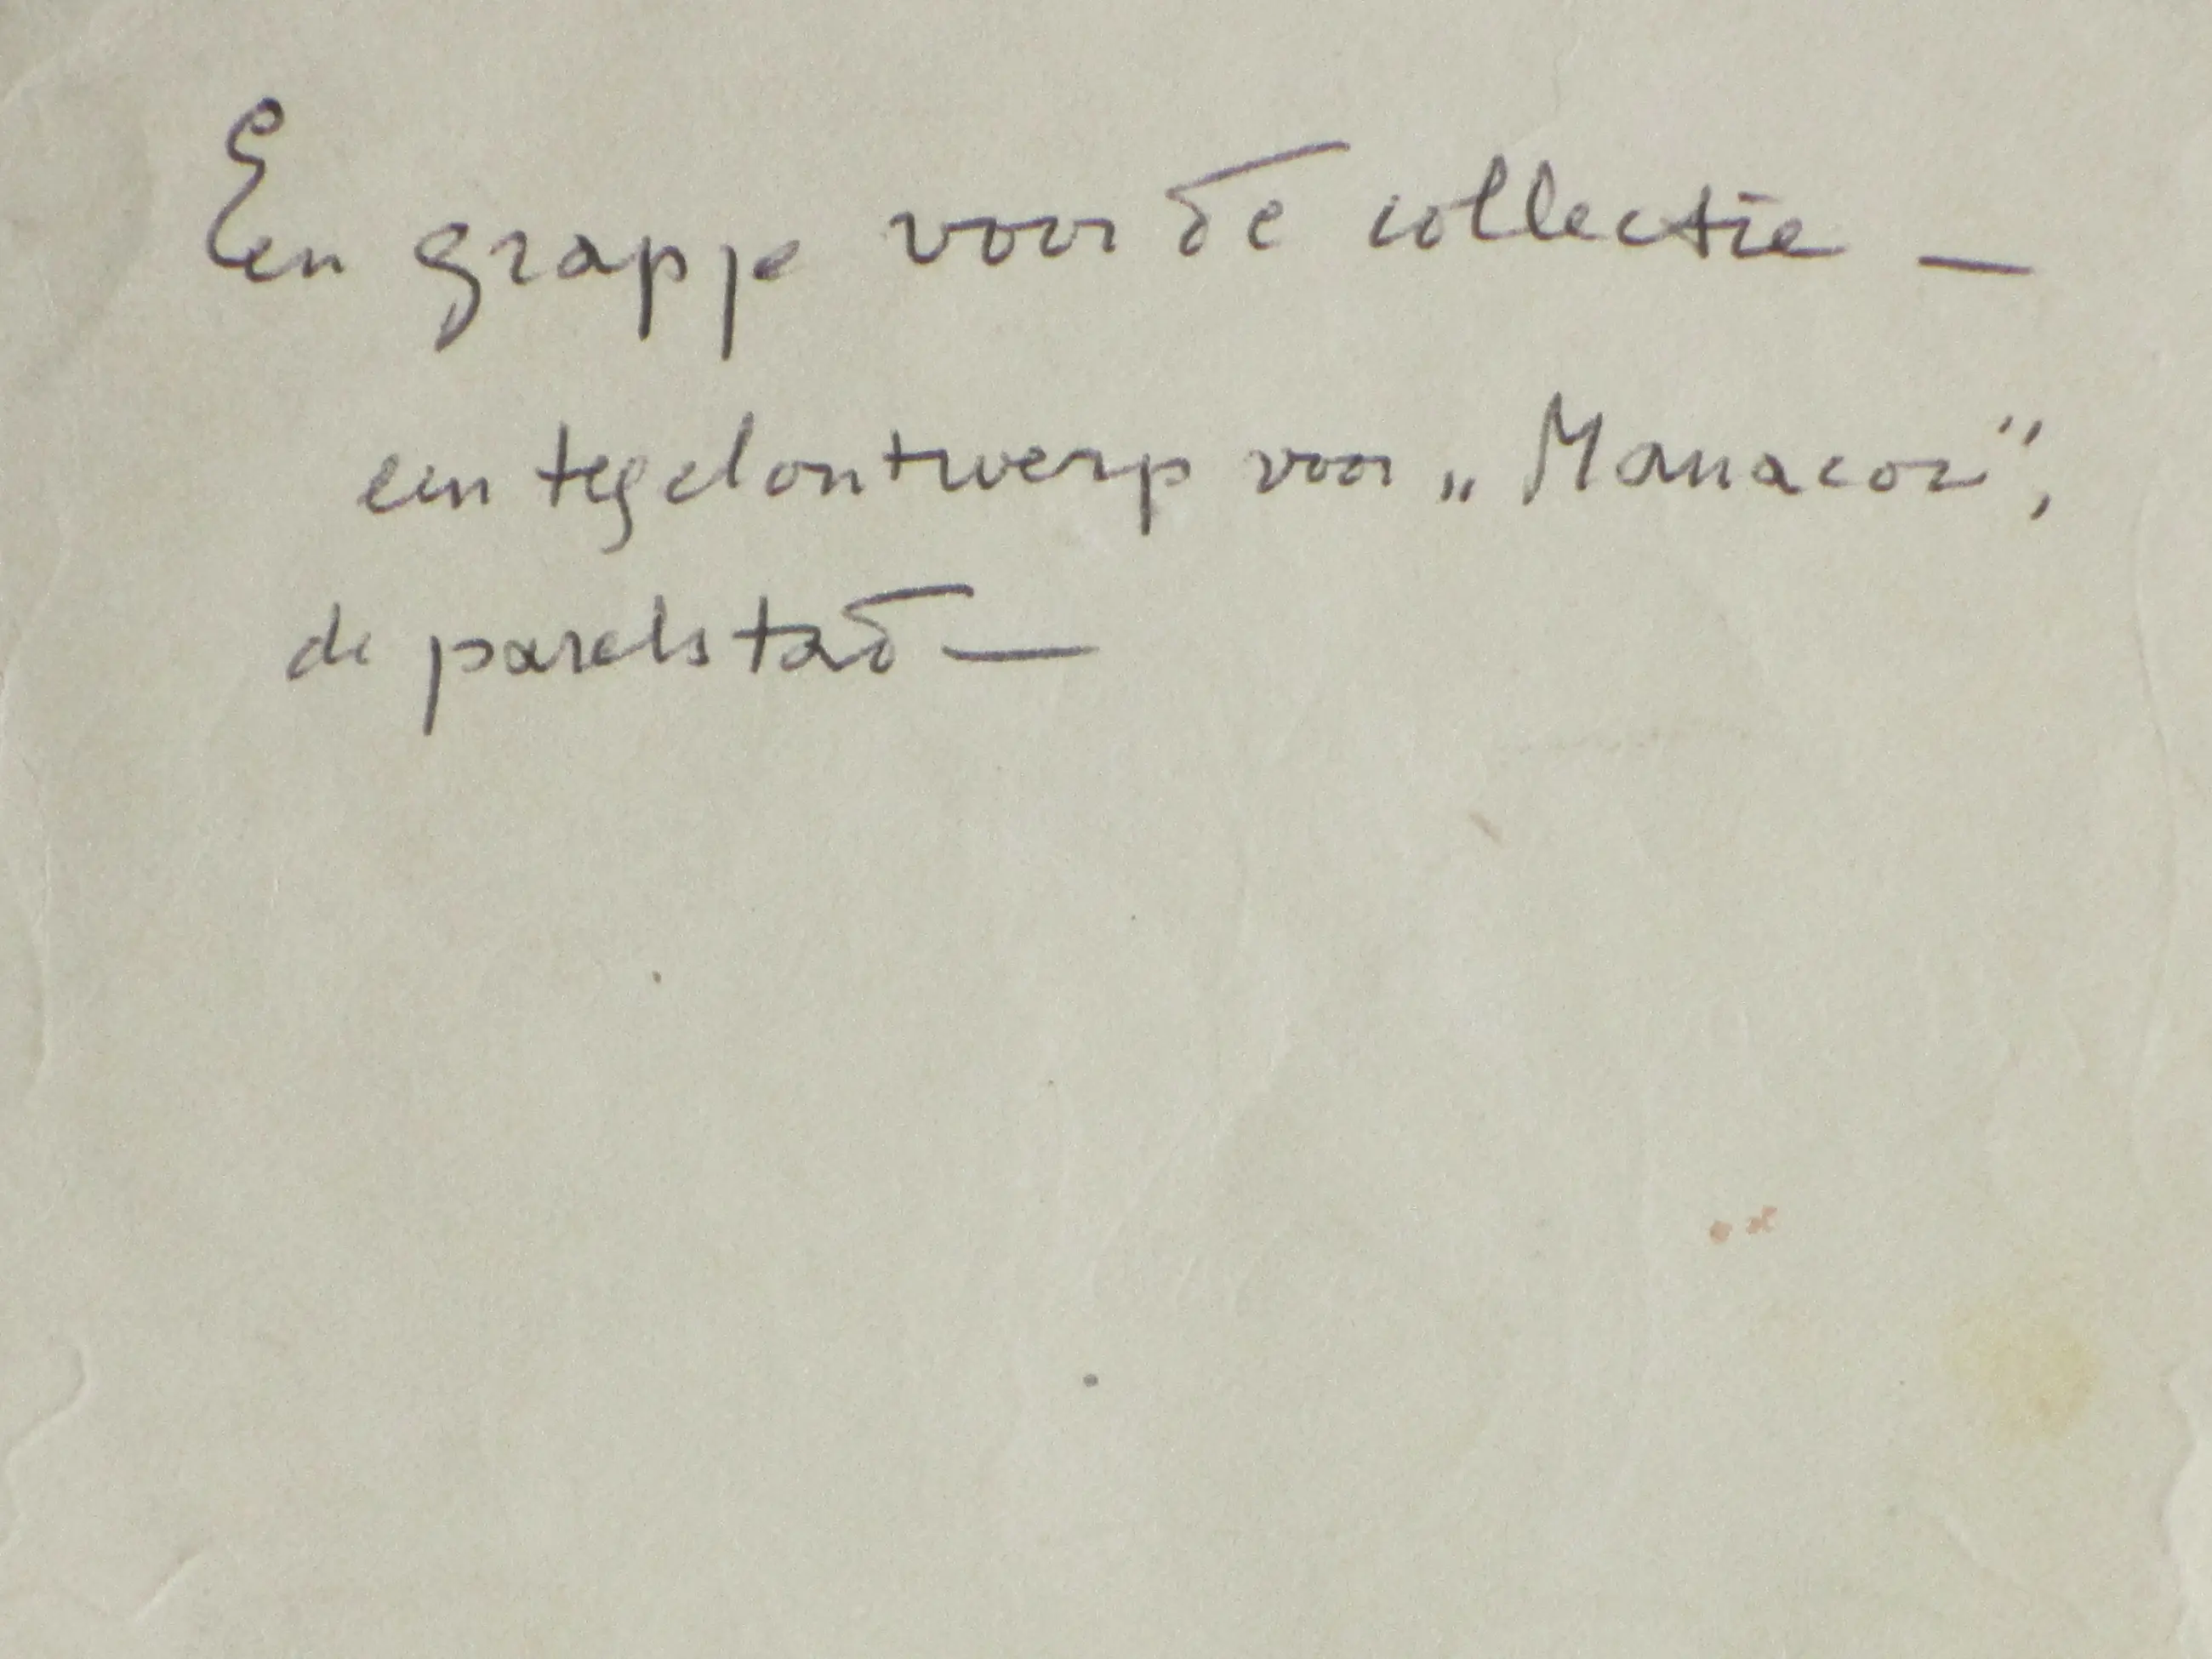 Een grapje voor de collectie —
een tegelontwerp voor „Manacor",
de parelstad —